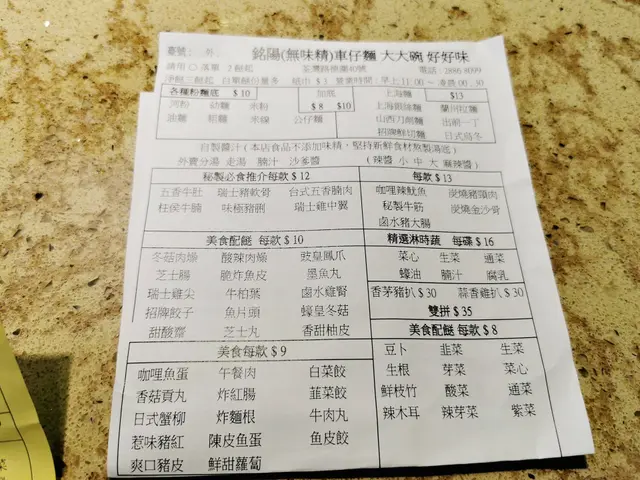 銘陽(無味精)車仔麵 大大碗 好好味
請用 ○ 落單 2餸起
電話：2886 8099
各種粉麵底 $ 10 加底 上海麵 $13
河粉 幼麵 米粉 $ 8 $10 上海眼綠麵 蘭州拉麵
油麵 粗麵 米線 公仔麵 山西刀削麵 出前一丁
招牌鮮切麵 日式烏冬
自製醬汁 ( 本店食品不添加味精，堅持新鮮食材熬製湯底 )
外賣分湯 走湯 腩汁 沙爹醬 ( 辣醬 小 中 大 麻辣醬 )
秘製必食推介每款 $ 12 每款 $ 13
五香牛肚 瑞士豬軟骨 台式五香腩肉 咖哩辣魷魚 炭燒豬頸肉
柱侯牛腩 味極豬脷 瑞士雞中翼 秘製牛筋 炭燒金沙骨
鹵水豬大腸
美食配餸 每款 $ 10 精選淋時蔬 每碟 $ 16
冬菇肉燥 酸辣肉燥 豉皇鳳爪 菜心 生菜 通菜
芝士腸 脆炸魚皮 墨魚丸 蠔油 腩汁 腐乳
瑞士雞尖 牛柏葉 鹵水雞腎 香茅豬扒 $ 30 蒜香雞扒 $ 30
招牌餃子 魚片頭 蠔皇冬菇 雙拼 $ 35
甜酸齋 芝士丸 香甜柚皮 美食配餸 每款 $ 8
美食每款 $ 9 豆卜 韭菜 生菜
咖哩魚蛋 午餐肉 白菜餃 生根 芽菜 菜心
香菇貢丸 炸紅腸 韮菜餃 鮮枝竹 酸菜 通菜
日式蟹柳 炸麵根 牛肉丸 辣木耳 辣芽菜 紫菜
惹味豬紅 陳皮魚蛋 魚皮餃
爽口豬皮 鮮甜蘿蔔